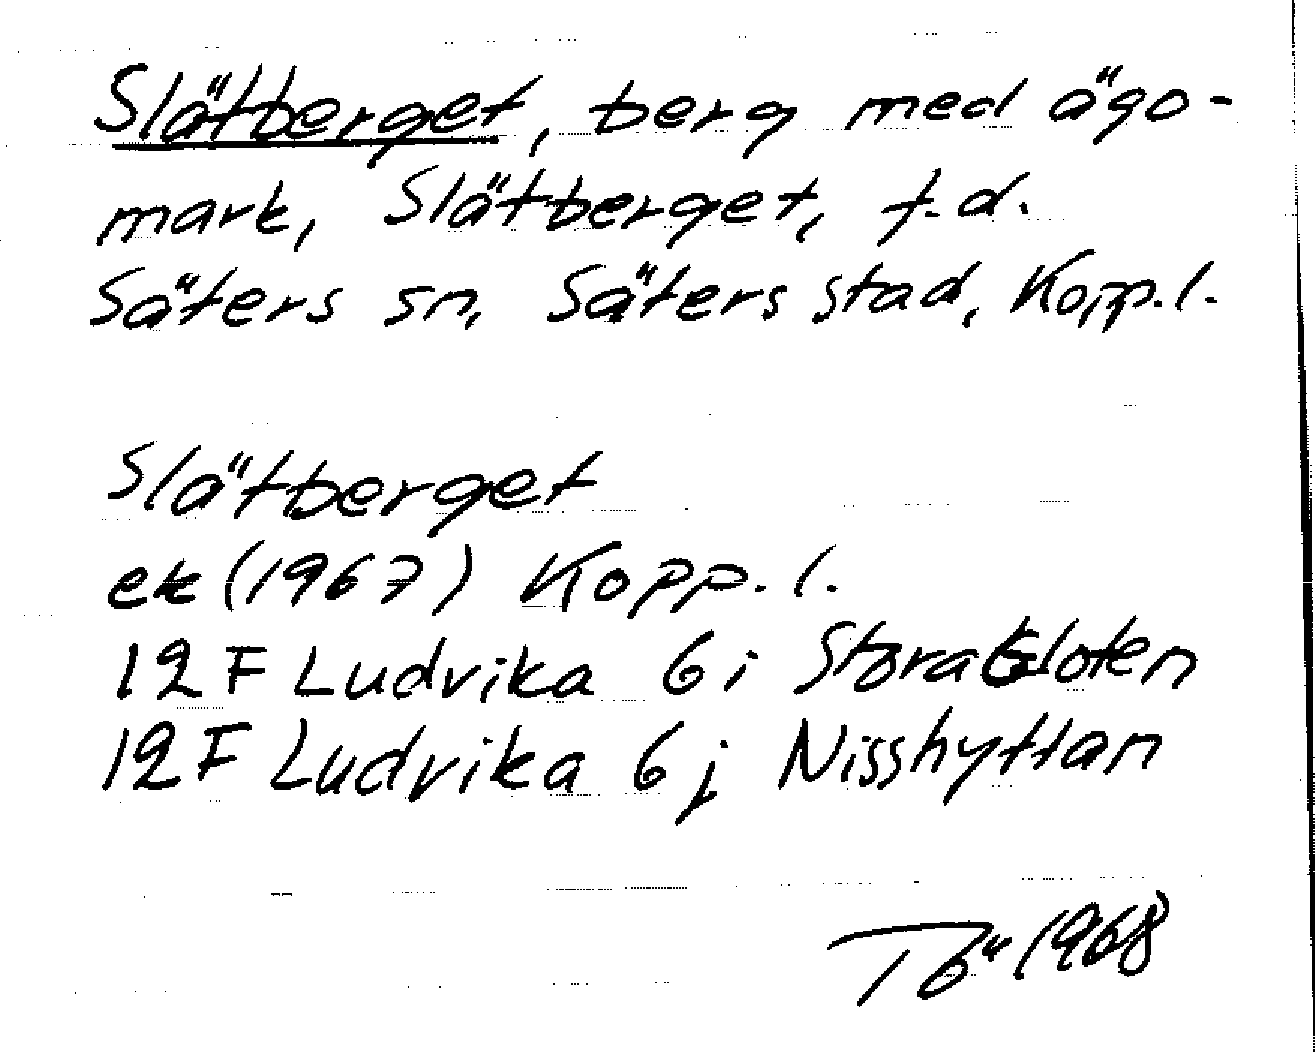 Slätberget, berg med ägo-
mark, Slätberget, f.d.
Säters sn, Säters stad, Kopp.l.
Slätberget
ek (1967) Kopp.l.
12F Ludvika 6i Stora Gloten
12F Ludvika 6j Nisshyttan
Tö 1968